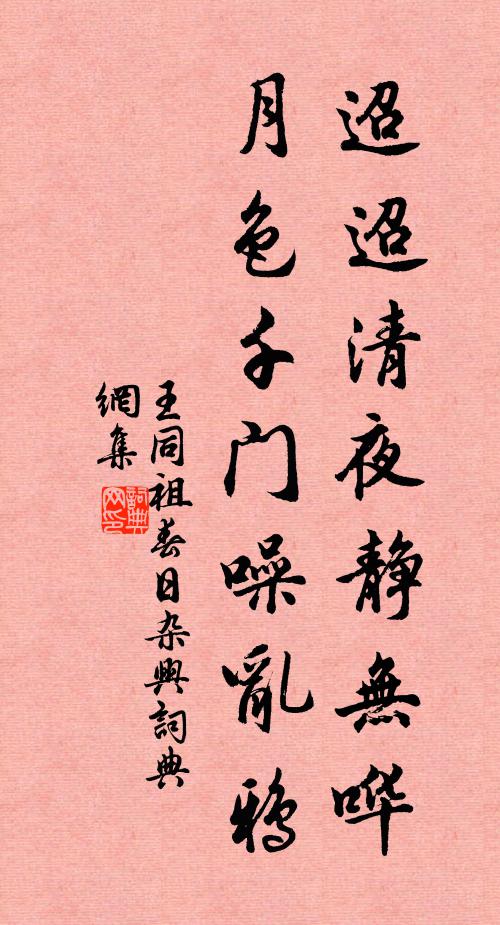 迢迢清夜静無哗
月色千门噪亂鸦
王同祖春日杂興詞典
網集
詞典网印